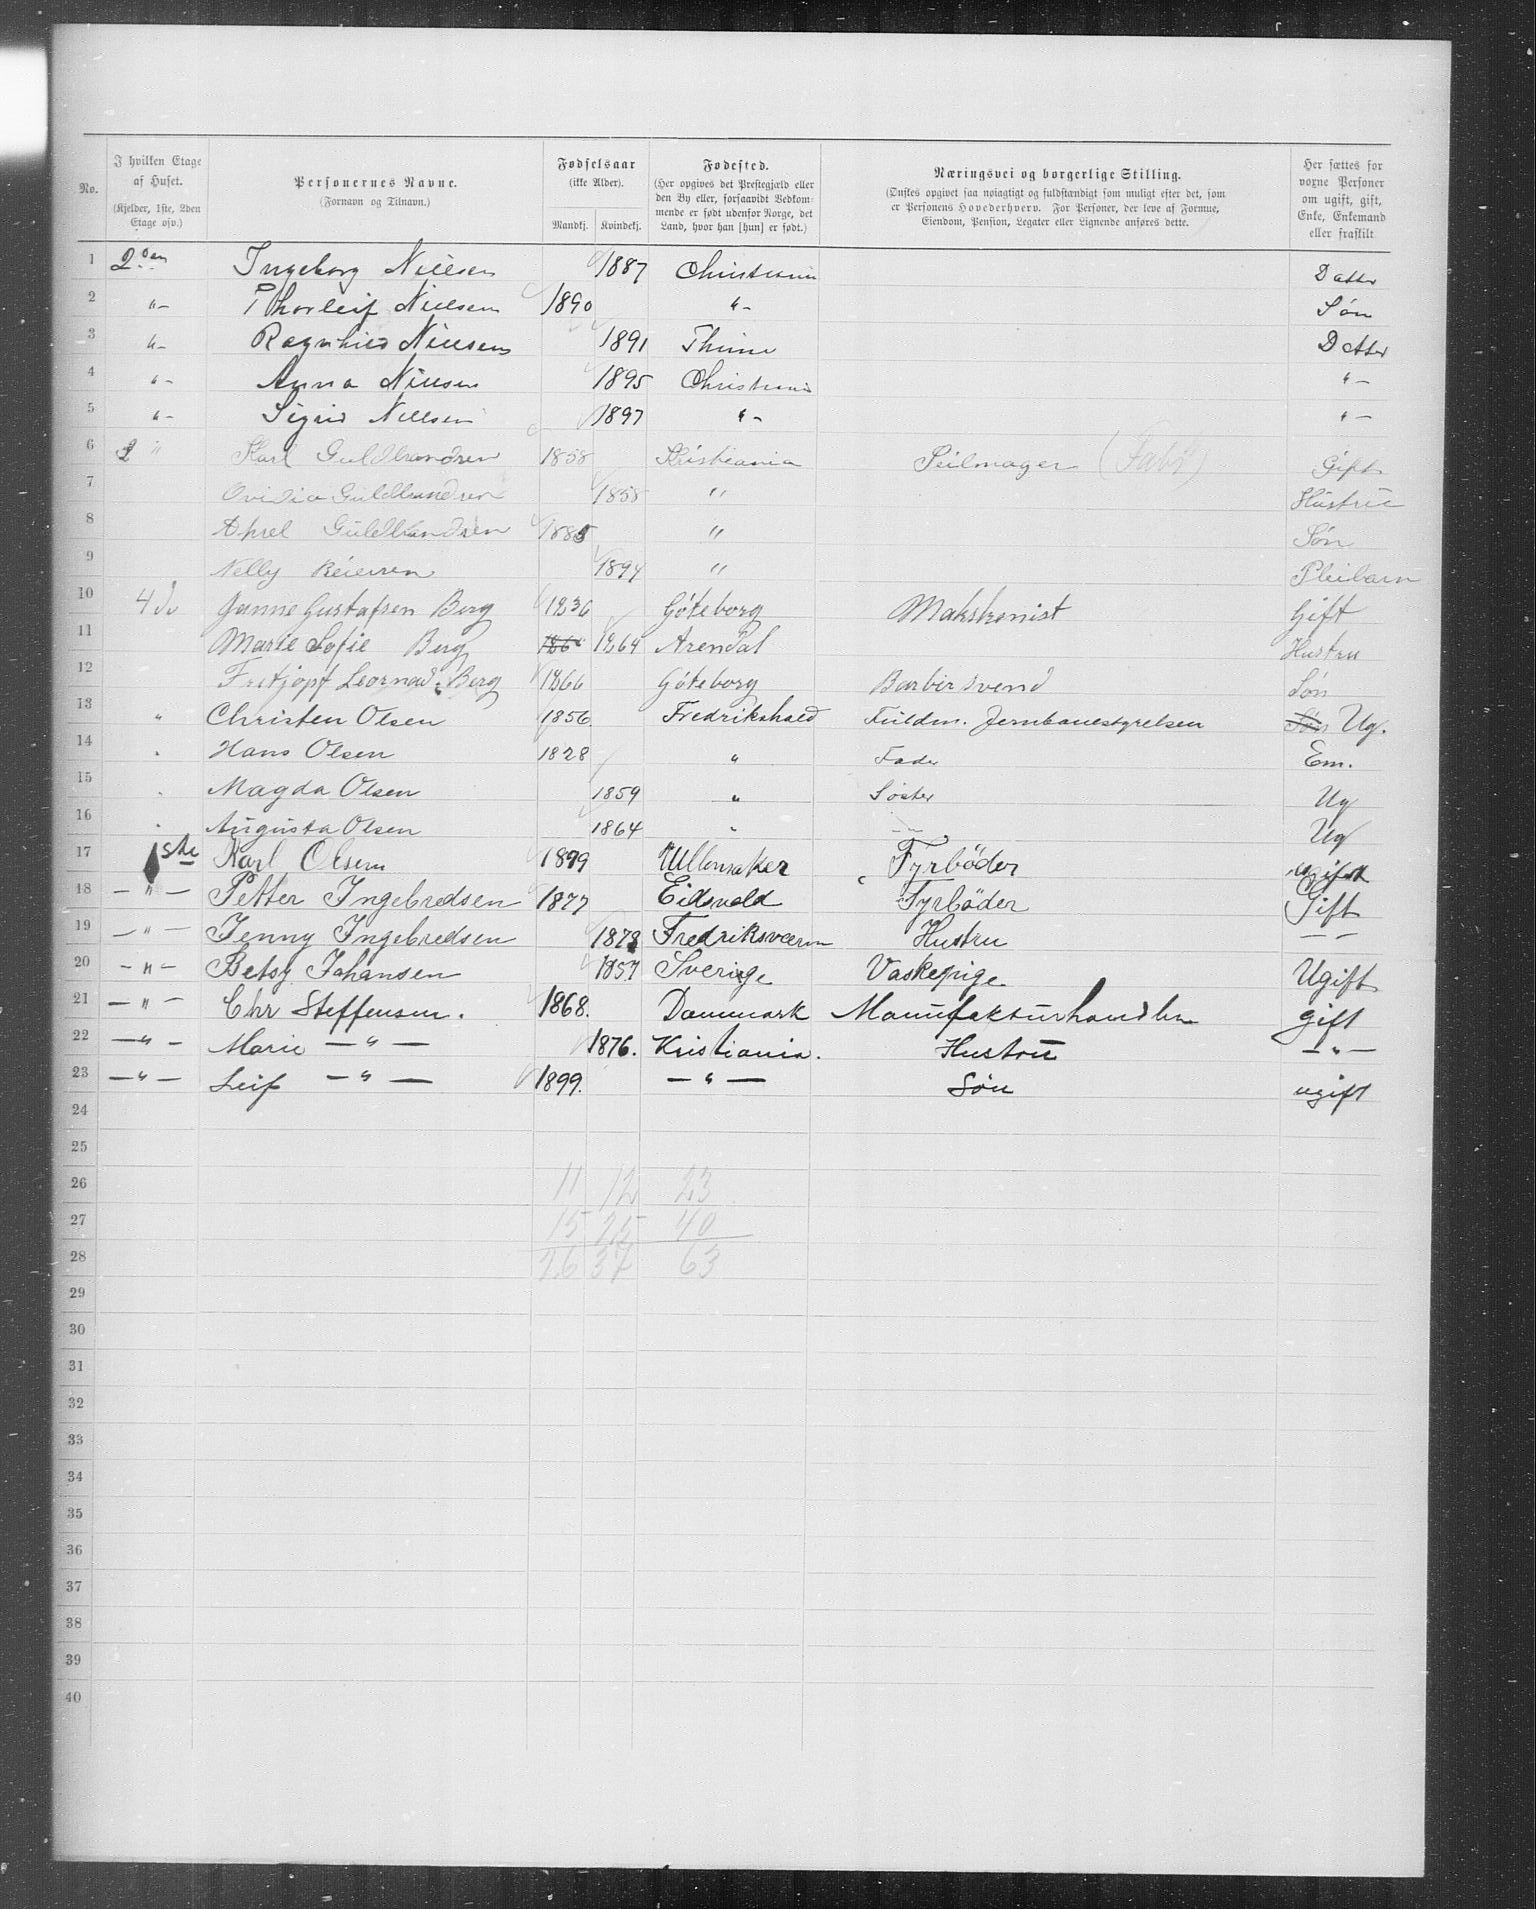 No. | I hvilken Etage af Huset. (Kjelder, 1ste, 2den Etage osv.) | Personernes Navne. (Fornavn og Tilnavn.) | Fødselsaar (ikke Alder). Mandkj. Kvindekj. | Fødested. (Her opgives det Prestegjæld eller den By eller, forsaavidt Vedkommende er født udenfor Norge, det Land, hvor han [hun] er født.) | Næringsvei og borgerlige Stilling. (Ønskes opgivet saa nøiagtigt og fuldstændigt som muligt efter det, som er Personens Hovederhverv. For Personer, der leve af Formue, Eiendom, Pension, Legater eller Lignende anføres dette. | Her sættes for voxne Personer om ugift, gift, Enke, Enkemand eller fraskilt
1 2den Ingeborg Nielsen 1887 Christiania Datter
2 "- Thorleif Nielsen 1890 "- Søn
3 "- Ragnhild Nielsen 1891 Datter
4 "- Anna Nielsen 1895 Christiania "-
5 "- Sigrid Nielsen 1897 "- "-
6 2 " Karl Guldbrandsen 1858 Kristiania Peilmager (Fabr) Gift
7 Ovidia Guldbrandsen 1858 " Hustru
8 Aksel Guldbrandsen 1885 " Søn
9 Nelly Reiersen 1894 " Pleibarn
10 4de Gustafsen Berg 1836 Göteborg Gift
11 Marie Sofie Berg 1864 1864 Arendal Hustru
12 Fritjopf Leornad Berg 1866 Göteborg Barbersvend Søn
13 " Christen Olsen 1856 Fredrikshald Fuldm. Jernbanestyrelsen Søn Ug.
14 " Hans Olsen 1828 " Fader Em.
15 " Magda Olsen 1859 " Søster Ug
16 " Augusta Olsen 1864 " " Ug
17 1ste Karl Olsen 1879 Ullensaker Fyrbøder ugift
18 — " — Petter Ingebredsen 1877 Eidsvold Fyrbøder Gift
19 — " — Jenny Ingebredsen 1873 Fredriksværn Hustru — —
20 — " — Betsy Johansen 1857 Sverige Vaskepige Ugift
21 — " — Chr Steffensen. 1868. Danmark Manufakturhandler gift
22 — " — Marie — " — 1876. Kristiania. Hustru — " —
23 — " — Leif — " — 1899. — " — Søn ugift
24
25
26 11 12 23
27 15 25 40
28 26 37 63
29
30
31
32
33
34
35
36
37
38
39
40